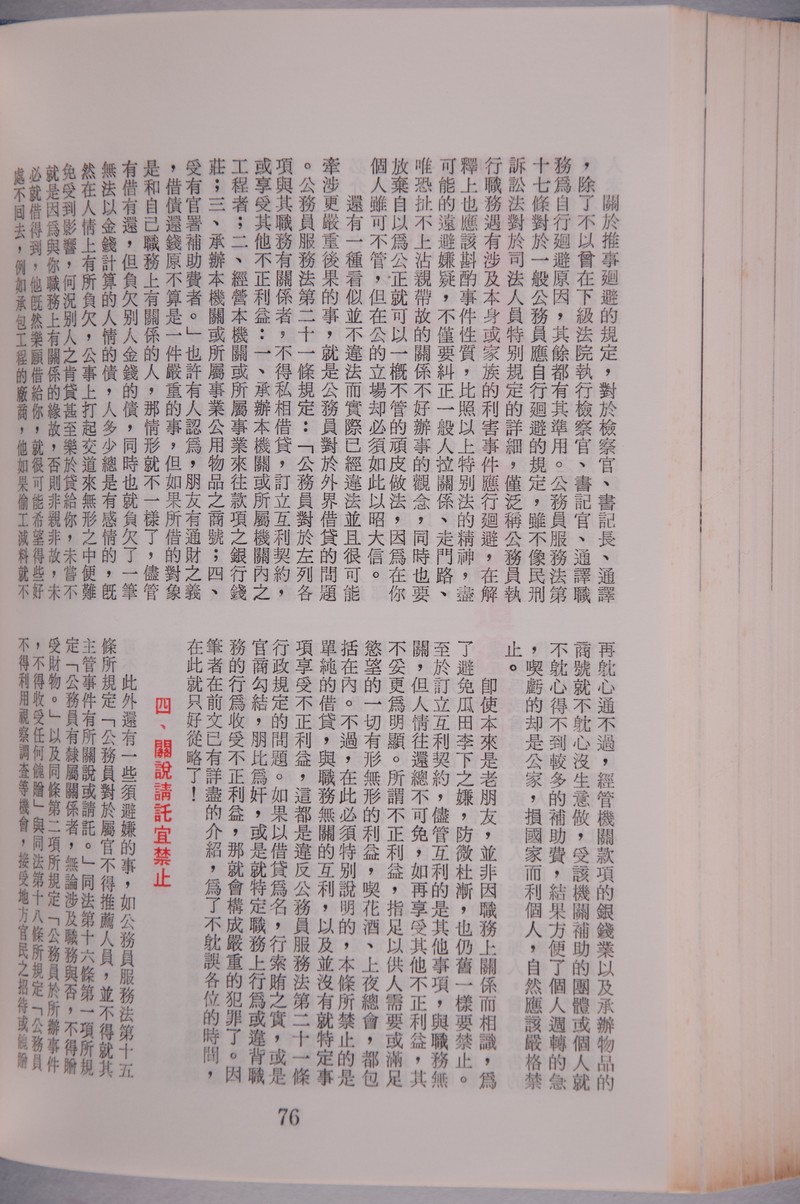 關於推事廻避的規定，對於檢察官、書記長、通譯
，除了不以曾在下級法院執行檢察官、書記官、通譯職
務爲自行廻避原因，其餘都有其準用。公務員服務法第
十七條對於一般公務員應自行廻避的規定，雖不像民刑
訴訟法對於司法人員特別規定的詳細，僅泛稱公務員執
行職務遇有涉及本身或家族的利害事件應行廻避，在解
釋上也應該斟酌事件性質，比照以上特別法的精神，盡
可能的遠避嫌疑，不僅要糾正一般人拉關係、走門路、
唯恐扯不上沾親帶故的關係不好辦事的觀念，同時也要
放棄自以爲公正就可以一槪不管的頑皮做法，因爲在你
個人雖可不管，但在公的立場却必須如此以昭大信。
還有一種看似並不違法而實際已經違法並且很可能
牽涉更嚴重後果的事，就是公務員對於外界借貸的問題
。公務員服務法第二十一條規定：「公務員對於左列各
項與其職務有關係者，不得私相借貸，訂立互利契約，
或享受其他不正利益：一、承辦本機關或所屬機關內之
工程者；二、經營本機關或所屬事業來往款項之銀行錢
莊；三、承辦本機關或所屬事業公用物品之商號；四、
受有官署補助費者。」也許有人認爲，朋友有通財之義
，借債還錢原不算是一件嚴重的事，但如果所借的對象
是和自己職務上有關係的人，那情形就不一樣了，儘管
有借有還，但負欠別人金錢的債，同時也就負欠了一筆
無法以金錢計算的人情的債，人多少總是有感情的，旣
然在人情上有所負欠，公事上打起交道來無形之中便難
免受到影響，何況別人之肯貸甚至樂於貸給你，未嘗不
就是因爲與你職務上有關係的緣故，否則非親非故，未
必就借得到，他旣然樂願借給你，就很可能希望得些好
處不回去，例如承包工程的廠商，他如果偷工減料就不
再躭心通不過，經管機關款項的銀錢業以及承辦物品的
商號就不躭心沒生意做，受該機關補助的團體或個人就
不躭心得不到較多的補助費，結果方便了個人週轉的急
，喫虧的却是公家，損國家而利個人，自然應該嚴格禁
止。
卽使本來是老朋友，並非因職務上關係而相識，爲
了避免瓜田李下之嫌，防微杜漸，也仍舊一樣要禁止。
至於訂立互利契約，儘管互利的是其他事項，與職務無
關，但人情往還總不可免，如再享受其他不正利益，其
不妥更爲明顯。所謂不正利益，指足以供人需要或滿足
慾望的一切有形無形的利益，喫花酒、上夜總會，都包
括在內。不過，在此必須特別說明的，本條所禁止的是
單純的借貸，與職務無關的互利，以及並沒有就特定事
項享受不正利益，這都是違反公務員服務法第二十一條
行政規定的問題。如果以借貸爲名，行索賄之實，或是
官商勾結，朋比爲奸，或是就特定職務上行爲或違背職
務的行爲收受不正利益，那就會構成嚴重的犯罪了。因
筆者在前文已有詳盡的介紹，爲了不躭誤各位的時間，
在此就只好從略了！
四、關說請託宜禁止
此外還有一些須避嫌的事，如公務員服務法第十五
條所規定「公務員對於屬官不得推薦人員，並不得就其
主管事件有所關說或請託。」同法第十六條第一項所規
定「公務員有隸屬關係者，無論涉及職務與否，不得贈
受財物。」以及同條第二項所規定「公務員於所辦事件
，不得收受任何餽贈」與同法第十八條所規定「公務員
不得利用視察調査等機會，接受地方官民之招待或餽贈
76